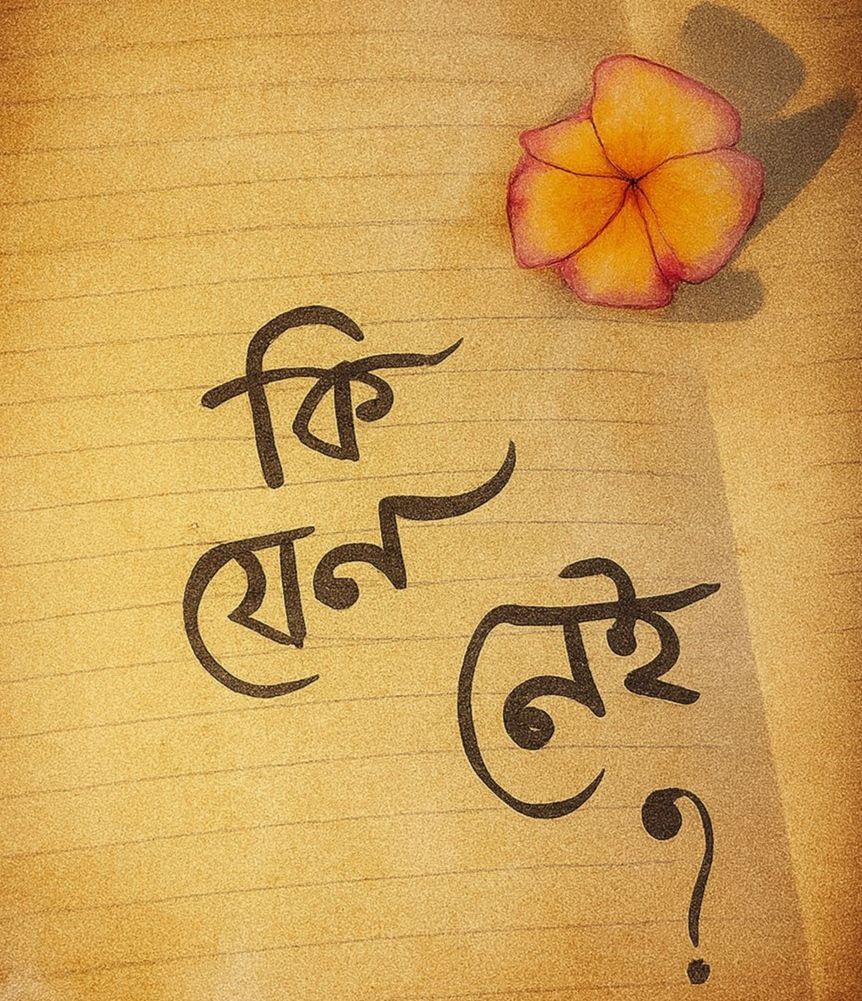 কি
যেন
নেই
?